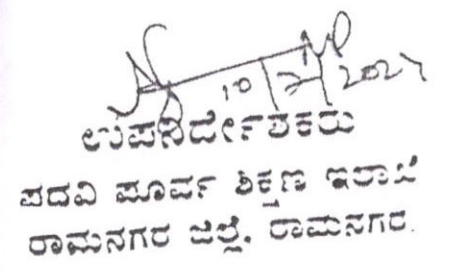 ಉಪನಿರ್ದೇಶಕರು
ಪದವಿ ಪೂರ್ವ ಶಿಕ್ಷಣ ಇಲಾಖೆ
ರಾಮನಗರ ಜಿಲ್ಲೆ, ರಾಮನಗರ.